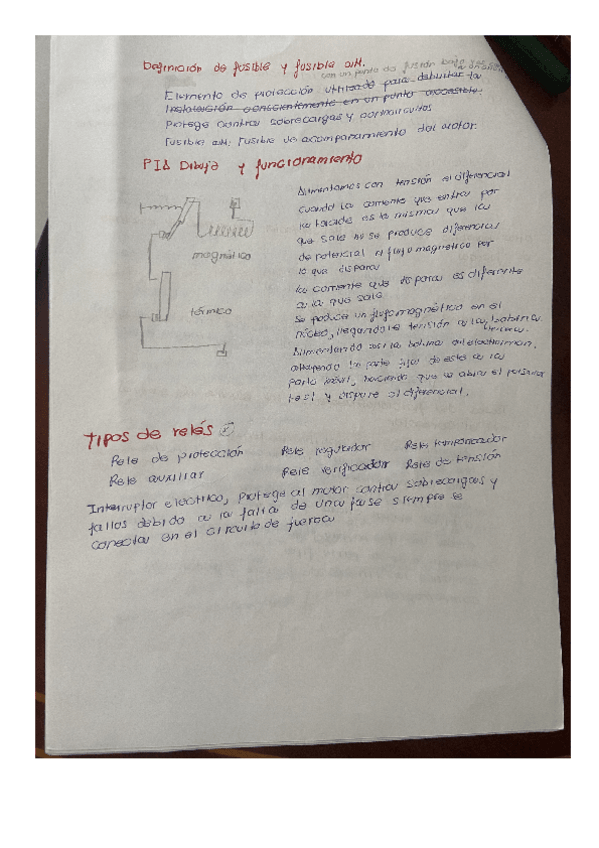 Definición de fusible y fusible aM.
con un punto de fusión bajo
Elemento de protección utilizado para debilitar la
instalación conscientemente en un punto accesible.
Protege contra sobrecargas y cortocircuitos
Fusible aM: Fusible de acompañamiento del motor.
PIA Dibujo y funcionamiento
Alimentamos con tensión el diferencial
cuando la corriente que entra por
la tocada es la misma que la
que sale no se produce diferencia
de potencial ni flujo magnetico por
lo que dispara
magnético
la corriente que dispara es diferente
a la que sale
térmico
Se produce un flujo magnético en el
núcleo, llegandole tensión a la bobina
Alimentando así la bobina del electroiman,
atrayendo la parte fija de esta a la
parte móvil, haciendo que se abra el
test y dispare el diferencial.
Tipos de relés
Rele de protección Rele regulador Rele temporizador
Rele auxiliar Rele verificador Rele de tensión
Interruptor electrico, protege al motor contra sobrecargas y
fallos debido a la falta de una fase siempre se
conecta en el circuito de fuerza